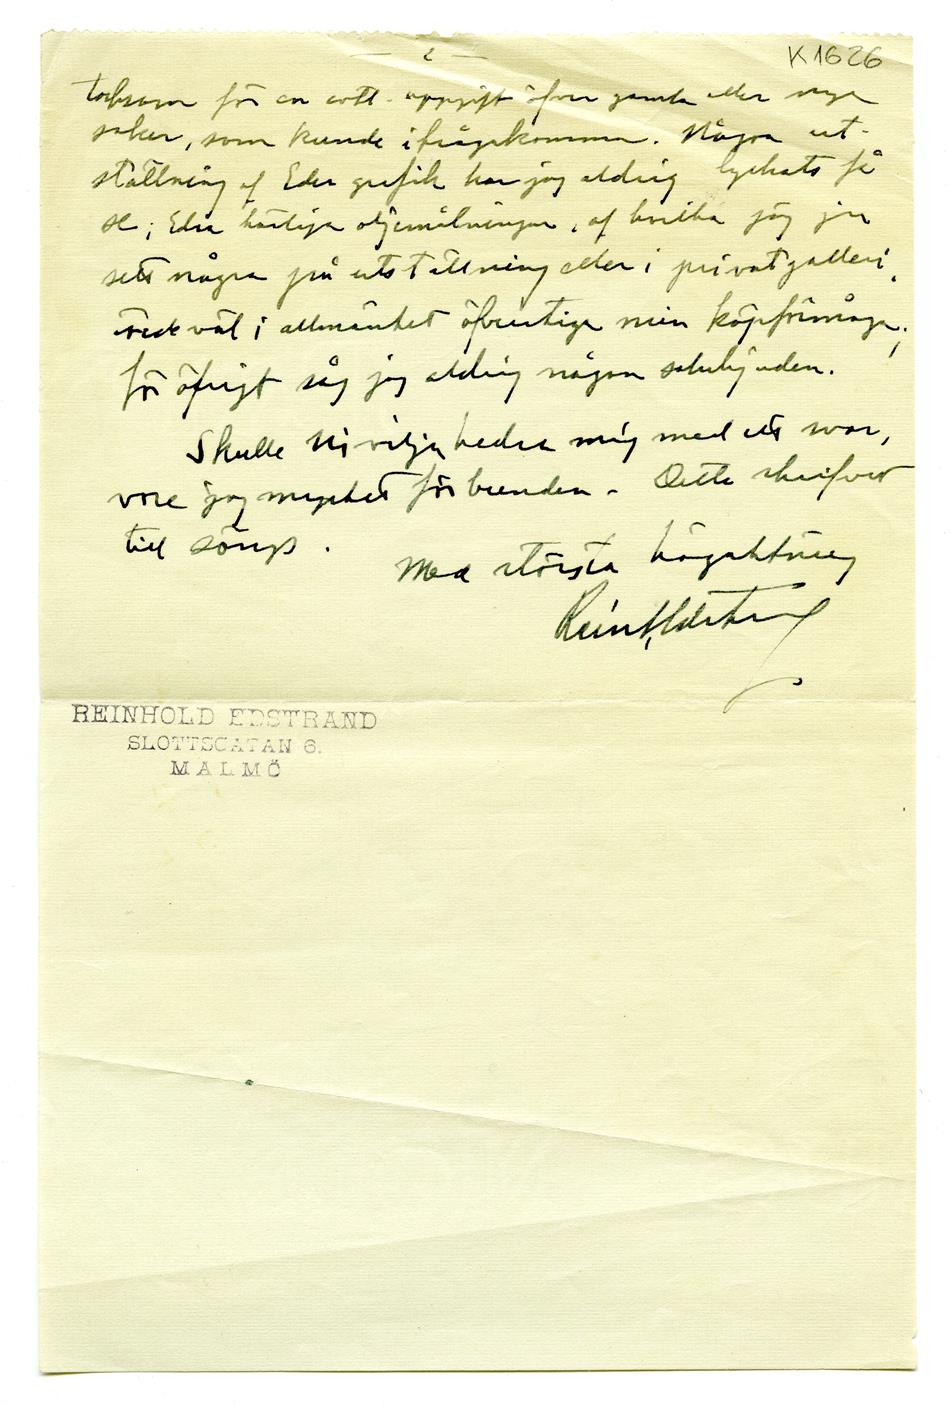 — 2 —
K 1626
tacksam för en evtl. uppgift öfver gamla eller nya
saker, som kunde ifrågakomma. Några ut-
ställning af Eder grafik har jag aldrig lyckats få
se; Edra härliga oljemålningar, af hvilka jag ju
sett några på utställning eller i privatgalleri,
väl i allmänhet öfverstiga min köpförmåga;
för öfrigt såg jag aldrig någon salubjuden.
Skulle Ni vilja hedra mig med ett svar,
vore jag mycket förbunden. Detta skrifvet
till sängs.
Med största högaktning
Reinh. Edstrand
REINHOLD EDSTRAND
SLOTTSGATAN 6.
MALMÖ